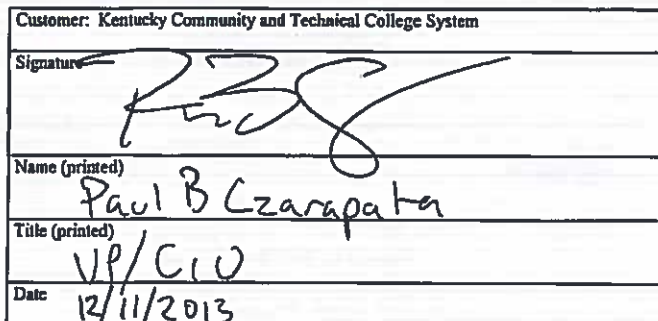 Customer: Kentucky Community and Technical College System
Signature
Name (printed)
Paul B Czarapata
Title (printed)
VP/CIO
Date
12/11/2013